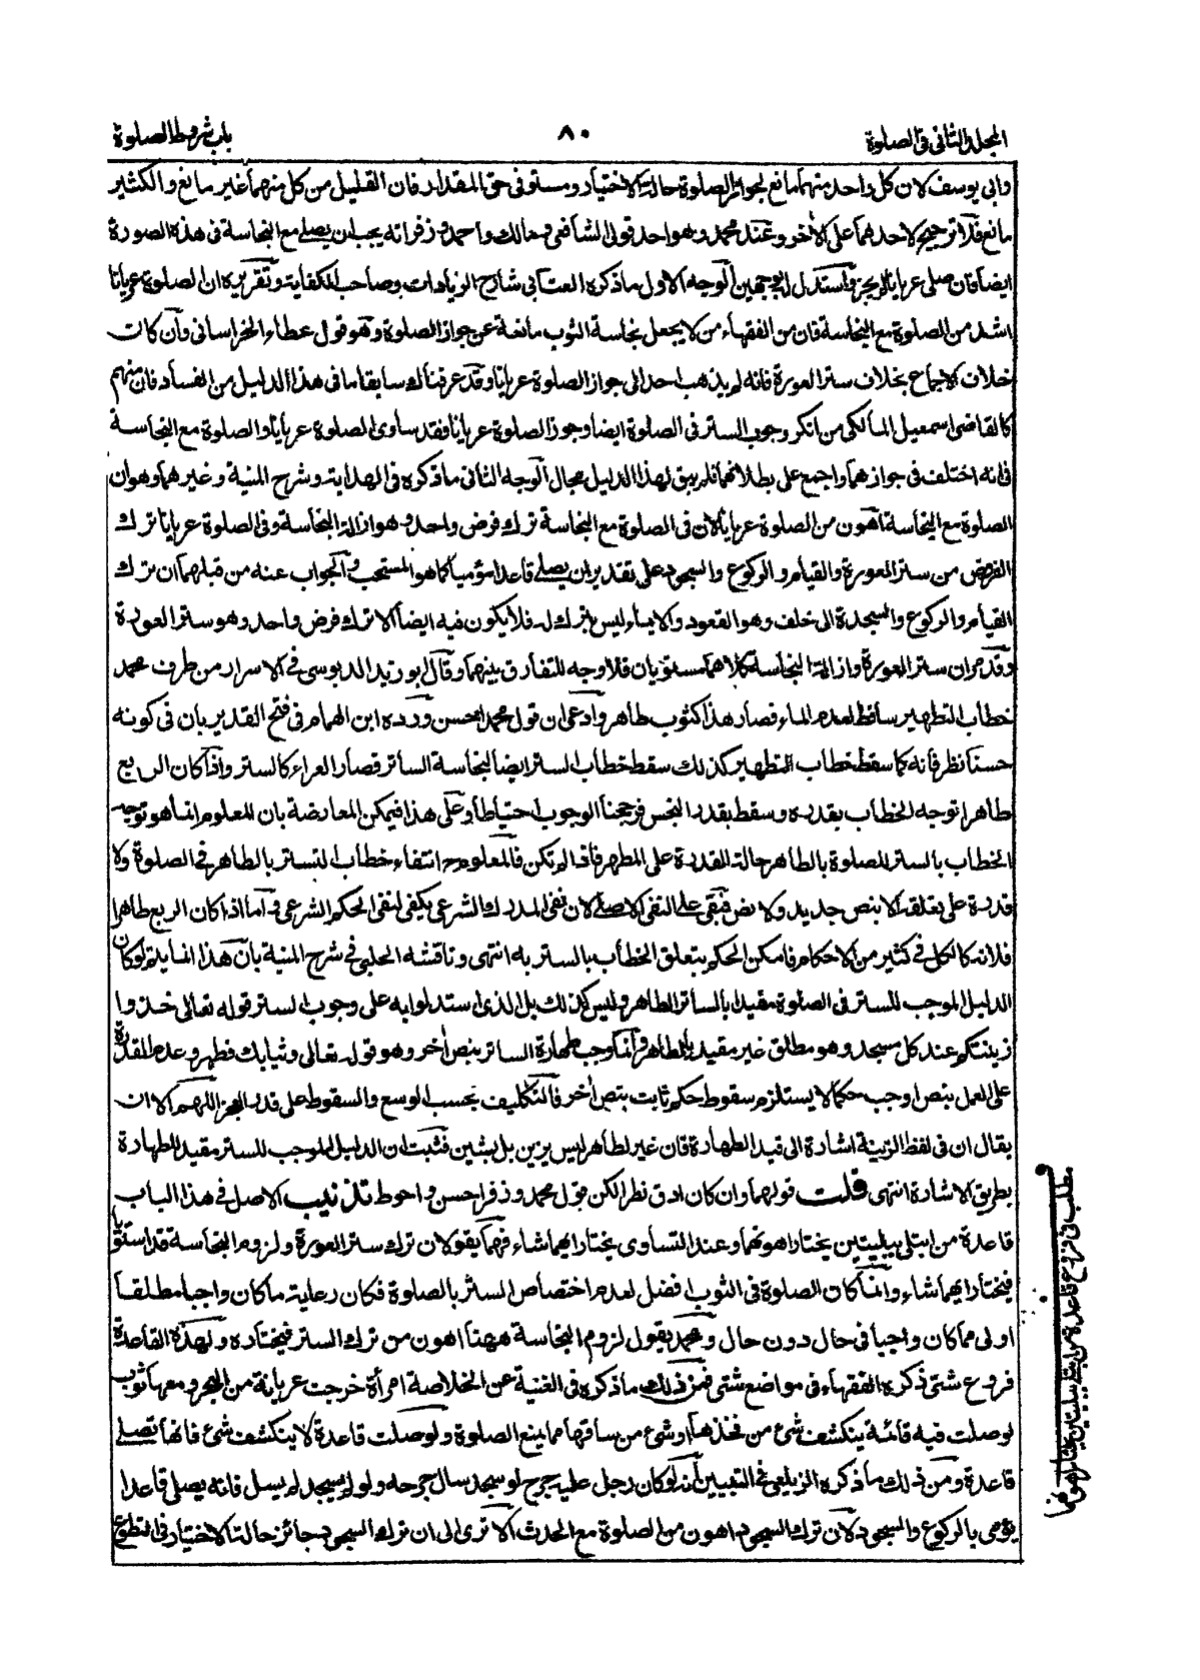 المجلد الثانى فى الصلوة
٨٠
باب شروط الصلوة
وابى يوسف لان كل واحد منهما مانع لجواز الصلوة حالة الاختيار ومستو فى حق المقدار فان القليل من كل منهما غير مانع والكثير
مانع فلا ترجيح لاحدهما على الآخر وعند محمد وهو احد قولى الشافعى ومالك واحمد وزفر انه يجب ان يصلے مع النجاسة فى هذه الصورة
ايضا فان صلى عريانا لم يجز واستدل له بوجهين الوجه الاول ما ذكره العتابى شارح الزيادات وصاحب الكفاية وتقريره ان الصلوة عريانا
اشد من الصلوة مع النجاسة فان من الفقهاء من لا يجعل نجاسة الثوب مانعة عن جواز الصلوة وهو قول عطاء الخراسانى وان كان
خلاف الاجماع بخلاف ستر العورة فانه لم يذهب احد الى جواز الصلوة عريانا وقد عرفناك سابقا ما فى هذا الدليل من الفساد فان منهم
كالقاضى اسمعيل المالكى من انكر وجوب الستر فى الصلوة ايضا وجوز الصلوة عريانا فقد ساوى الصلوة عريانا والصلوة مع النجاسة
فى انه اختلف فى جوازهما واجمع على بطلانهما فلم يبق لهذا الدليل مجال الوجه الثانى ما ذكره فى الهداية وشرح المنية وغيرهما وهو ان
الصلوة مع النجاسة اهون من الصلوة عريانا لان فى الصلوة مع النجاسة ترك فرض واحد وهو ازالة النجاسة وفى الصلوة عريانا ترك
الفرض من ستر العورة والقيام والركوع والسجود على تقدير ان يصلے قاعدا مؤميا كما هو المستحب والجواب عنه من قبلهما ان ترك
القيام والركوع والسجدة الى خلف وهو القعود والايماء ليس بترك له فلا يكون فيه ايضا الا ترك فرض واحد وهو ستر العورة
وقد مر ان ستر العورة وازالة النجاسة كلاهما مستويان فلا وجه للتفارق بينهما وقال ابو زيد الدبوسى فے الاسرار من طرف محمد
خطاب التطهير ساقط لعدم الماء فصار هذا كثوب طاهر وادعى ان قول محمد احسن ورده ابن الهمام فى فتح القدير بان فى كونه
حسنا نظر فانه كما سقط خطاب التطهير كذلك سقط خطاب الستر ايضا لنجاسة الساتر فصار العراء كالستر واذا كان الربع
طاهرا توجه الخطاب بقدره وسقط بقدر النجس فرجحنا الوجوب احتياطا وعلى هذا فيمكن المعارضة بان المعلوم انما هو توجه
الخطاب بالستر للصلوة بالطاهر حالة القدرة على المطهر فاذا لم تكن فالمعلوم ح انتفاء خطاب التستر بالطاهر فے الصلوة ولا
قدرة على تعلقه الا بنص جديد ولا نص فبقى علے النفى الاصلے لان نفى المدرك الشرعى يكفى لنفى الحكم الشرعى واما اذا كان الربع طاهرا
فلانه كالكل فى كثير من الاحكام فامكن الحكم بتعلق الخطاب بالستر به انتهى وناقشه الحلبى فے شرح المنية بان هذا انما يتم لو كان
الدليل الموجب للستر فى الصلوة مقيدا بالساتر الطاهر وليس كذلك بل الذى استدلوا به على وجوب الستر قوله تعالى خذوا
زينتكم عند كل مسجد وهو مطلق غير مقيد بالطاهر وانما وجب طهارة الساتر بنص آخر وهو قوله تعالى وثيابك فطهر وعدم القدرة
على العمل بنص اوجب حكما لا يستلزم سقوط حكم ثابت بنص آخر فالتكليف بحسب الوسع والسقوط على قدر العجز اللهم الا ان
يقال ان فى لفظ الزينة اشارة الى قيد الطهارة فان غير الطاهر ليس بزين بل بشين فثبت ان الدليل الموجب للستر مقيد بالطهارة
بطريق الاشارة انتهى قلت قولهما وان كان ادق نظرا لكن قول محمد وزفر احسن واحوط تذنيب الاصل فے هذا الباب
قاعدة من ابتلى ببليتين يختار اهونهما وعند التساوى يختار ايهما شاء فهما يقولان ترك ستر العورة ولزوم النجاسة قد استويا
فيختار ايهما شاء وانما كان الصلوة فى الثوب افضل لعدم اختصاص الستر بالصلوة فكان رعاية ما كان واجبا مطلقا
اولى مما كان واجبا فى حال دون حال ومحمد يقول لزوم النجاسة ههنا اهون من ترك الستر فيختاره ولهذه القاعدة
فروع شتى ذكره الفقهاء فى مواضع شتى فمن ذلك ما ذكره فى الغنية عن الخلاصة امرأة خرجت عريانة من البحر ومعها ثوب
لو صلت فيه قائمة ينكشف شئ من فخذها او شئ من ساقها مما يمنع الصلوة ولو صلت قاعدة لا ينكشف شئ فانها تصلے
قاعدة ومن ذلك ما ذكره الزيلعى فے التبيين انه لو كان رجل عليه جرح لو سجد سال جرحه ولو لم يسجد لم يسل فانه يصلى قاعدا
يؤمى بالركوع والسجود لان ترك السجود اهون من الصلوة مع الحدث الا ترى الى ان ترك السجود جائز حالة الاختيار فى التطوع
مطلب فى فروع قاعدة من ابتلے ببليتين يختار اهونهما